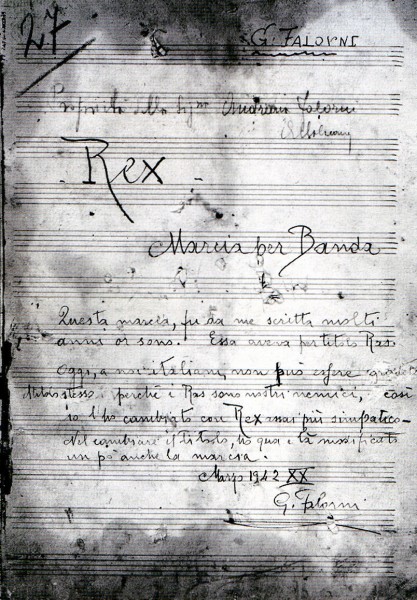 27
G. FALORNI
Proprietà della Falorni
Rex -
Marcia per Banda
Questa marcia, fu da me scritta molti
anni or sono. Essa aveva per titolo Ras
Oggi, a noi italiani, non può essere gradito
stesso, perchè i Ras sono nostri nemici, così
io l'ho cambiato con Rex assai più simpatico -
Nel cambiare il titolo, ho qua e là modificato
un pò anche la marcia.
Marzo 1942 XX
G. Falorni